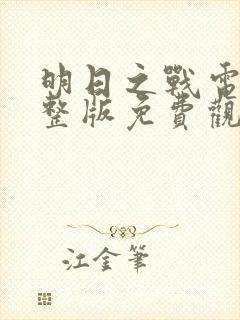 明日之戰電
整版免費觀
江金筆